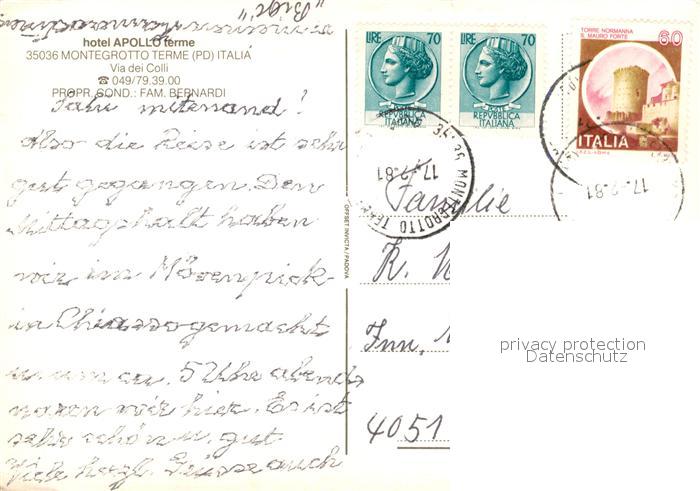 "Bigi"
hotel APOLLO terme
35036 MONTEGROTTO TERME (PD) ITALIA
Via dei Colli
☎ 049/79.39.00
PROPR. GOND.: FAM. BERNARDI
mitenand!
Also die Reise ist sehr
gut gegangen. Den
Mittagshalt haben
wir im Mövenpick
in Chiasso gemacht
u. um ca. 5 Uhr abends
waren wir hier. Es ist
sehr schön u. gut
Viele herzl. Grüsse auch
OFFSET INVICTA/PADOVA
LIRE 70
REPVBBLICA
ITALIANA
LIRE 70
REPVBBLICA
ITALIANA
TORRE NORMANNA
S. MAURO FORTE
60
ITALIA
I.P.Z.S.-ROMA
MONTEGROTTO
17. 81
17. 81
Familie
K.
Inn.
4051
privacy protection
Datenschutz